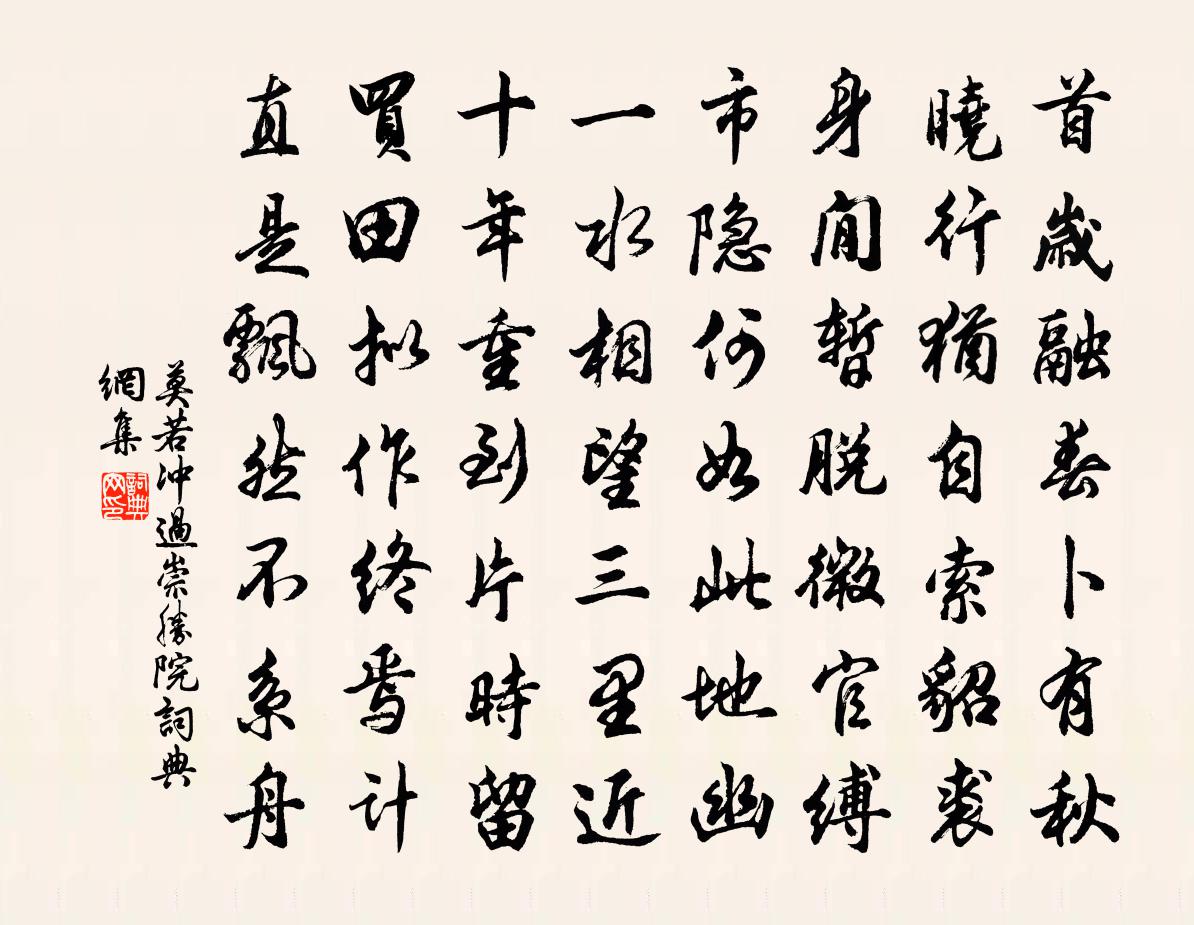 首歳融春卜有秋
曉行猶自索貂裘
身閒暫脱微官縛
市隐何如此地幽
一水相望三里近
十年重到片時留
買田拟作终焉计
直是飄然不系舟
莫若沖過崇勝院詞典
網集
詞典网印